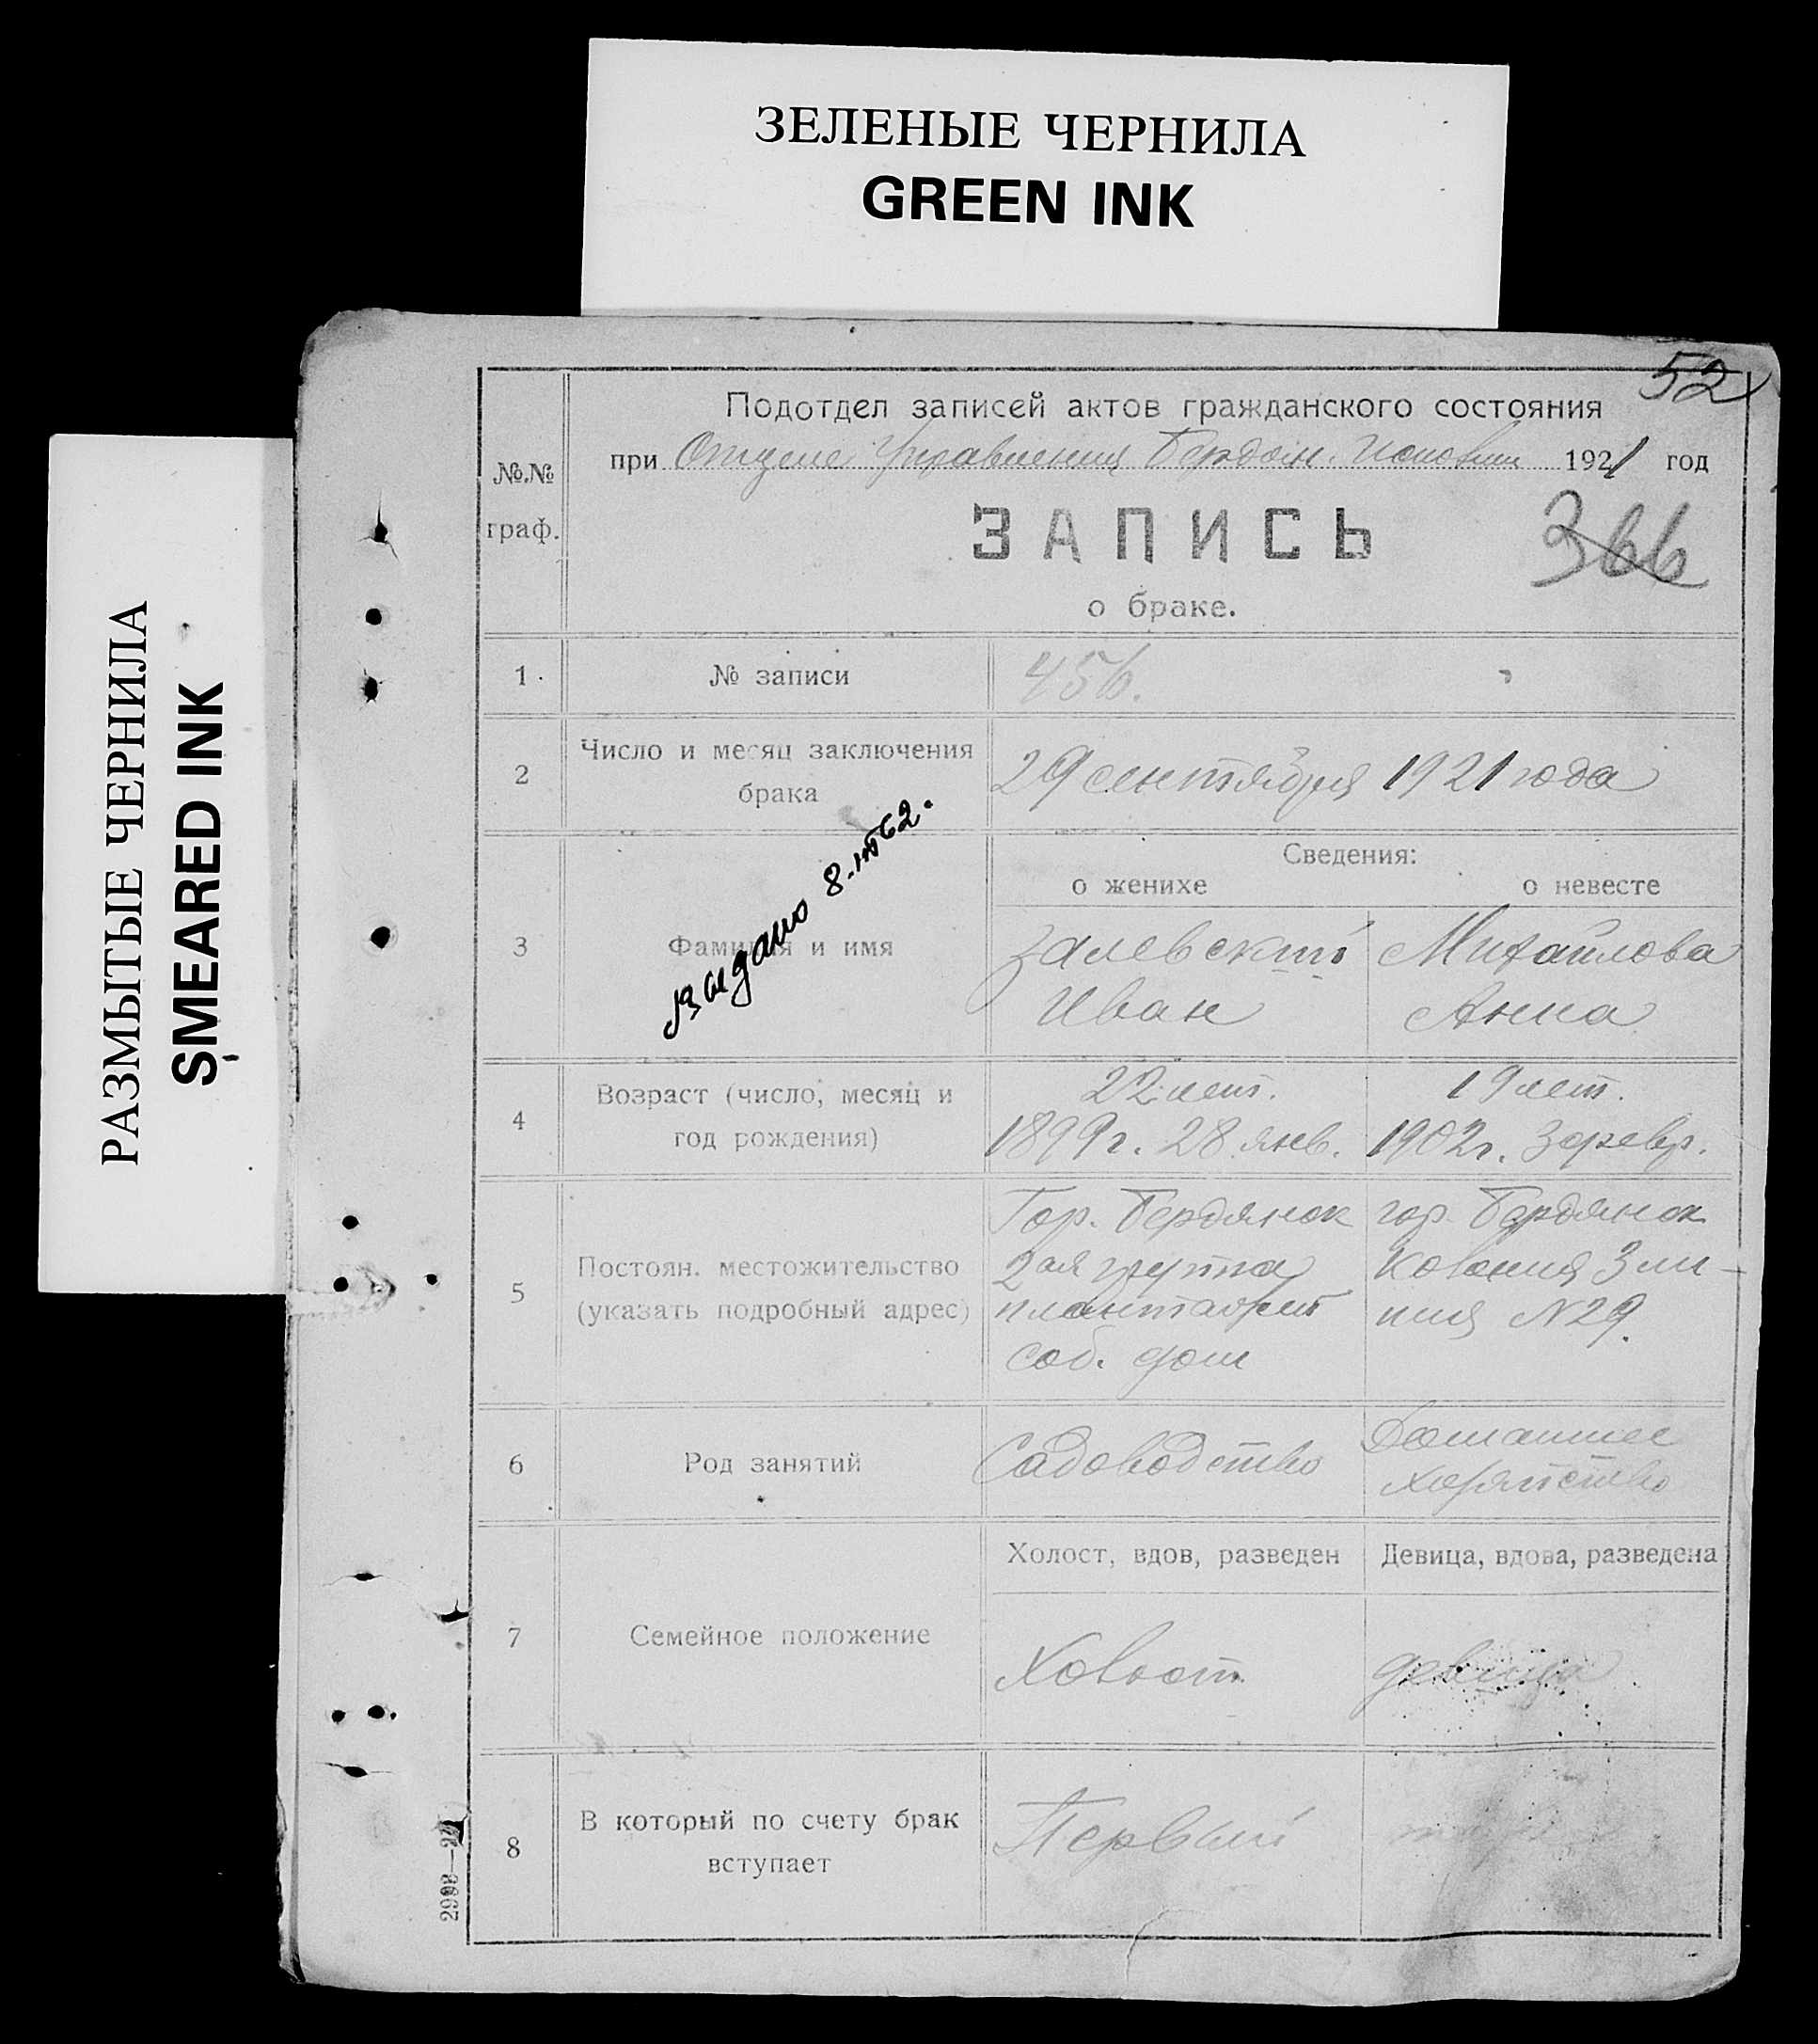 ЗЕЛЕНЫЕ ЧЕРНИЛА
GREEN INK
РАЗМЫТЫЕ ЧЕРНИЛА
SMEARED INK
52
Подотдел записей актов гражданского состояния
при Отделе Управления Бердян. 1921 год
№.№
граф.
ЗАПИСЬ
366
о браке.
1 № записи 456.
2 Число и месяц заключения
брака
29 сентября 1921 года
Сведения:
о женихе о невесте
3 Фамилия и имя
Залевский Михайлова
Иван Анна
Выдано 8-
62.
4 Возраст (число, месяц и
год рождения)
22 лет. 19 лет.
1899 г. 28 янв. 1902 г. 3 февр.
5 Постоян. местожительство
(указать подробный адрес)
Гор. Бердянск гор. Бердянск
2ая группа Колония 3 ли-
плантаций ния N 29.
соб. дом
6 Род занятий
Садоводство Домашнее
хозяйство
7 Семейное положение
Холост, вдов, разведен Девица, вдова, разведена
Холост девица
8 В который по счету брак
вступает
Первый